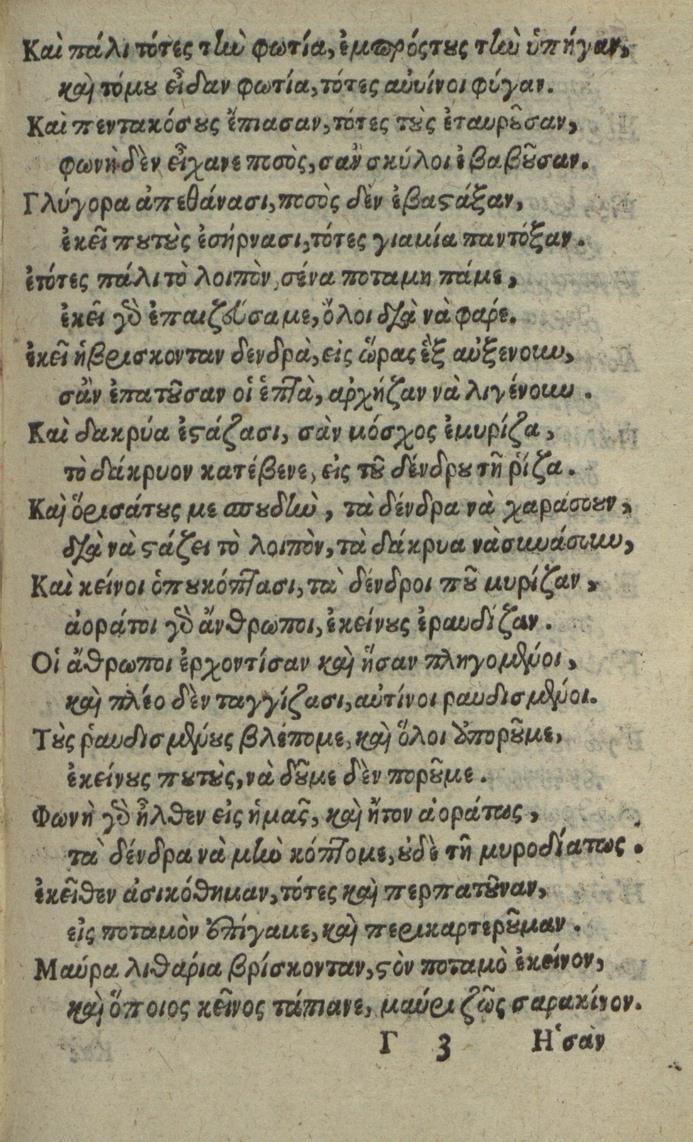 Καὶ πάλι τότες τὴν φωτία, ἐμπρόςτυς τὴν ὑπήγαν,
καὶ τόμου εἶδαν φωτία, τότες αὐτίνοι φύγαν.
Καὶ πεντακόσους ἔπιασαν, τότες τοὺς ἐταυροῦσαν,
φωνὴ δὲν εἶχανε ποσὸς, σὰν σκύλοι ἐβαβοῦσαν.
Γλύγορα ἀπεθάνασι, ποσὸς δὲν ἐβαστάξαν,
ἐκεῖ πουτοὺς ἐσήρνασι, τότες γιαμία παντόξαν.
ἐτότες πάλι τὸ λοιπὸν, σένα ποταμη πάμε,
ἐκεῖ γὸ ἐπαιζούσαμε, ὅλοι διὰ νὰ φαρε.
ἐκεῖ ἡβρισκονταν δενδρὰ, εἰς ὥρας ἓξ αὐξενουν,
σὰν ἐπατοῦσαν οἱ ἑπτὰ, αρχήζαν νὰ λιγένουν.
Καὶ δακρύα ἐστάζασι, σὰν μόσχος ἐμυρίζα,
τὸ δάκρυον κατέβενε, εἰς τοῦ δένδρου τῆ ῥίζα.
Καὶ ὅρισάτους με σπουδὴν, τὰ δένδρα νὰ χαράσουν,
διὰ νὰ στάζει τὸ λοιπὸν, τὰ δάκρυα νὰ συνάσουν,
Καὶ κείνοι ὁπουκόπτασι, τὰ δένδροι ποῦ μυρίζαν,
ἀοράτοι γὸ ἄνθρωποι, ἐκείνους ἐραυδίζαν.
Οἱ ἄθρωποι ἐρχοντίσαν καὶ ἤσαν πληγομένοι,
καὶ πλέο δὲν ταγγίζασι, αὐτίνοι ραυδισμένοι.
Τοὺς ῥαυδισμένους βλέπομε, καὶ ὅλοι ἀποροῦμε,
ἐκείνους πουτοὺς, νὰ δοῦμε δὲν ποροῦμε.
Φωνὴ γὸ ἦλθεν εἰς ἡμας, καὶ ἤτον ἀοράτως,
τὰ δένδρα νὰ μὴν κόπτομε, οὐδὲ τῆ μυροδίατως.
ἐκεῖθεν ἀσικόθημαν, τότες καὶ περπατοῦναν,
εἰς ποταμὸν ἀπίγαμε, καὶ περικαρτεροῦμαν.
Μαύρα λιθάρια βρίσκονταν, στὸν ποταμὸ ἐκείνον,
καὶ ὅποιος κεῖνος τάπιανε, μαύρι ζῶς σαρακίνον.
Γ 3 Ἡσὰν